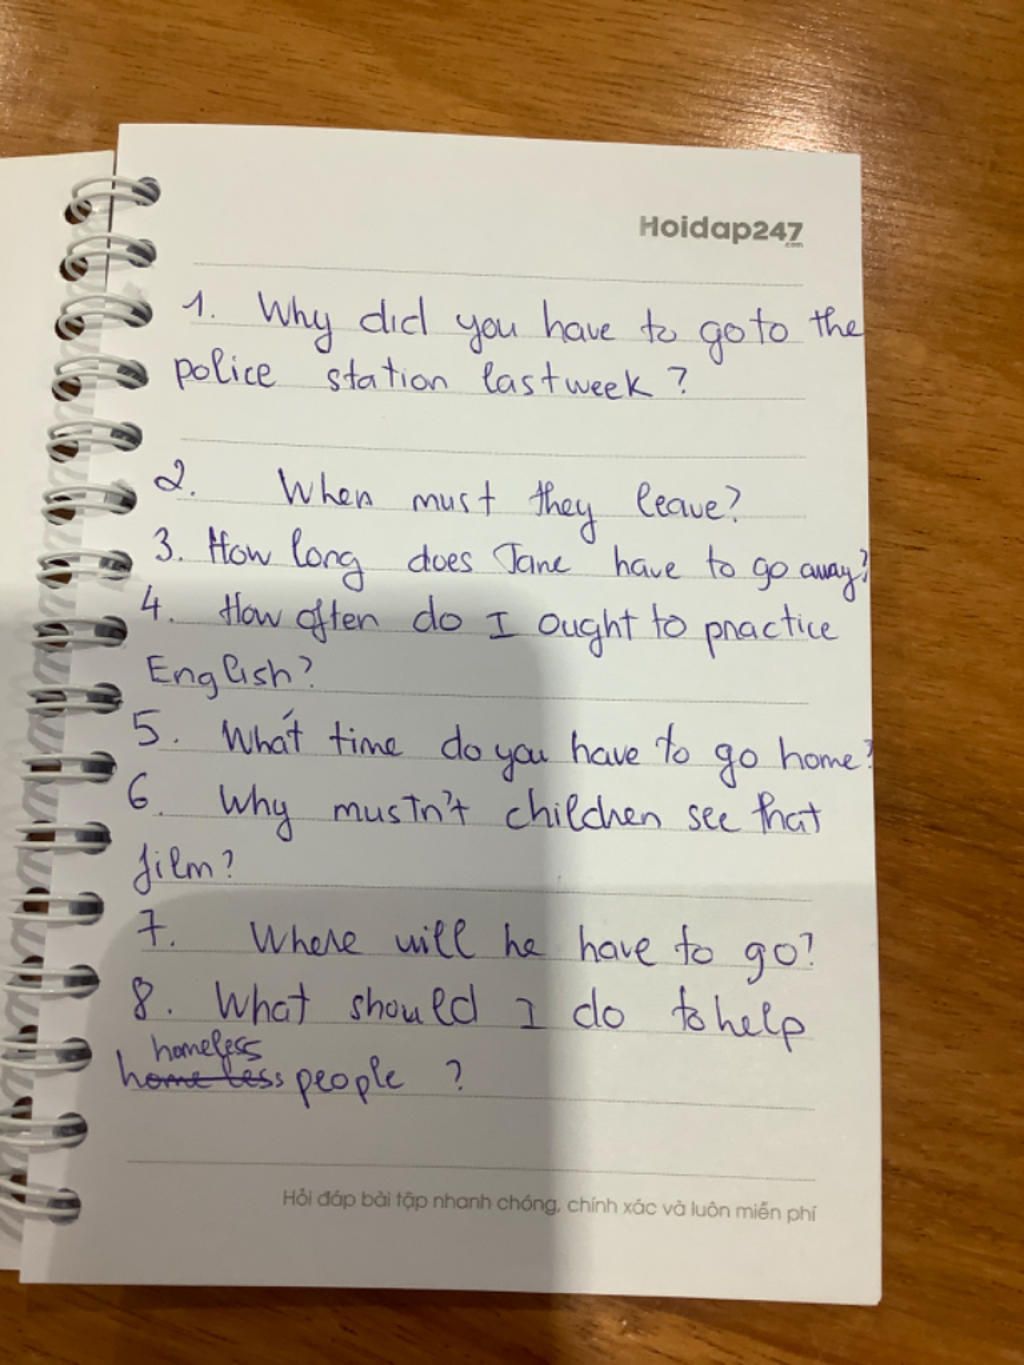 Hoidap247
.com
1. Why did you have to go to the
police station last week?
2. When must they leave?
3. How long does Jane have to go away?
4. How often do I ought to practice
English?
5. What time do you have to go home?
6. Why mustn't children see that
film?
7. Where will he have to go?
8. What should I do to help
homeless
home less people ?
Hỏi đáp bài tập nhanh chóng, chính xác và luôn miễn phí